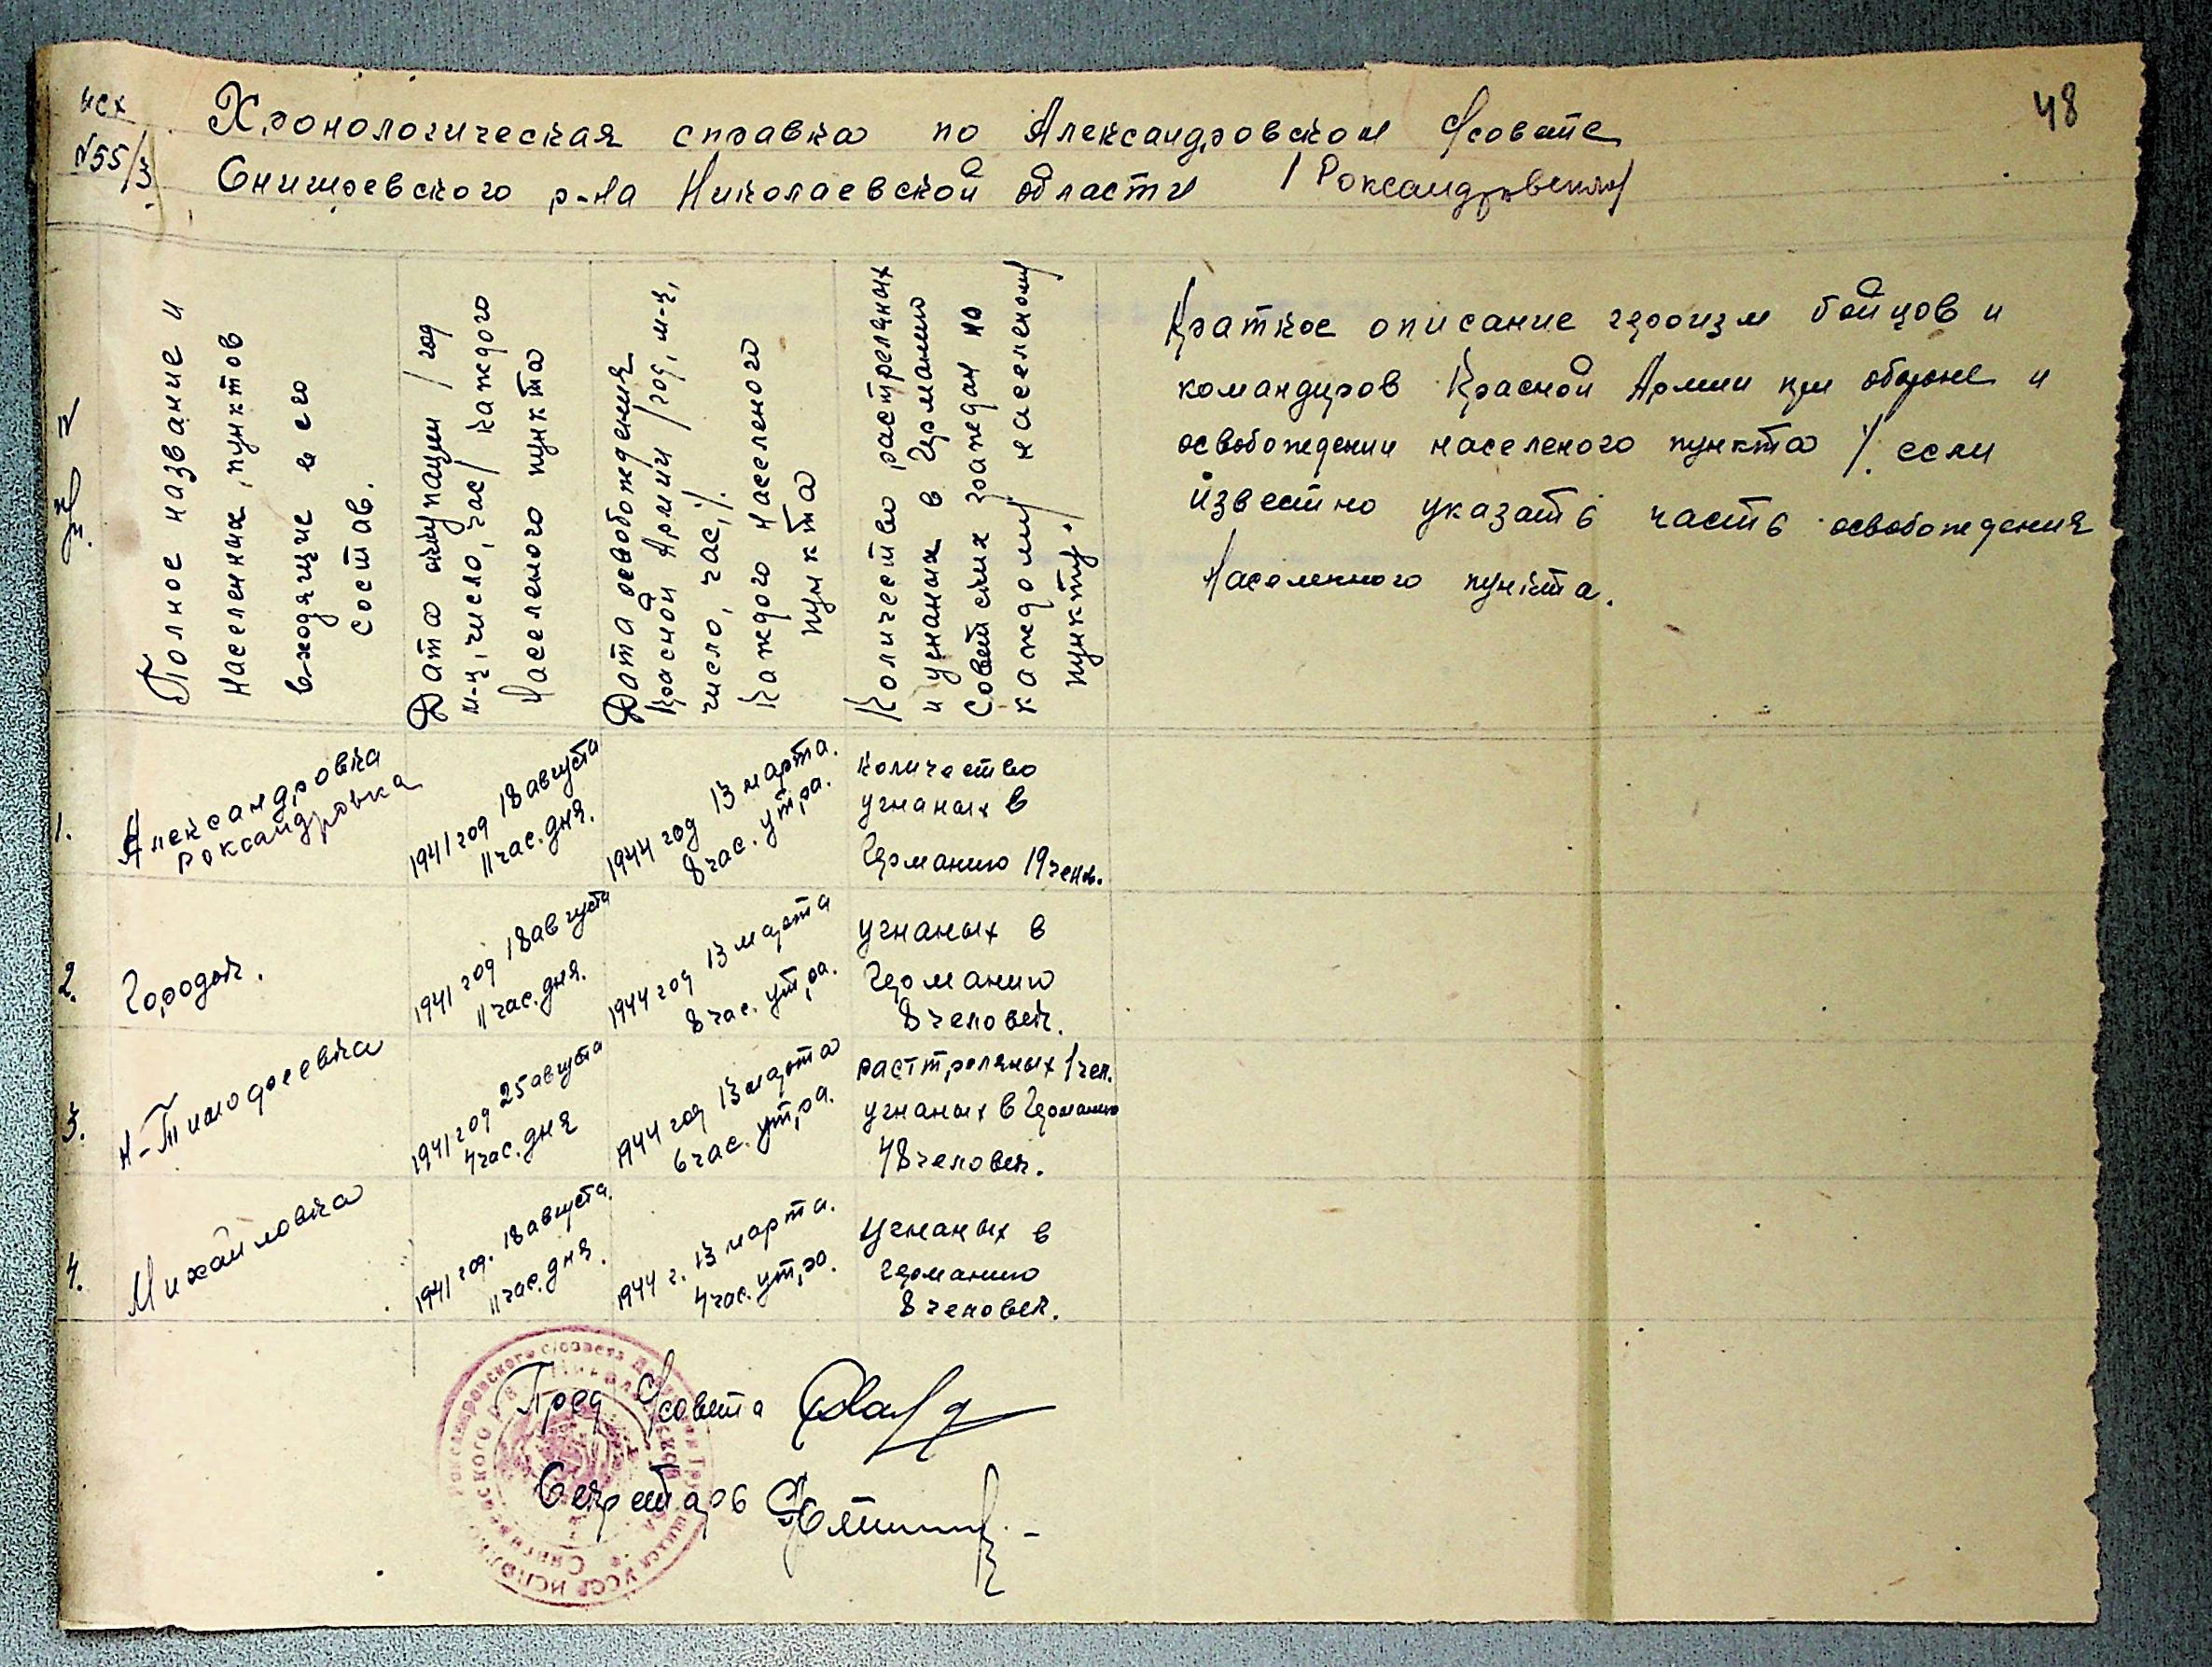 исх
№55/3
48
Хронологическая справка по Александровском с/совете
Снигиревского р-на Николаевской области /Роксандровский/
№ п/п.
Полное название и
населенных пунктов
входящие в его
состав.
Дата оккупации /год
м-ц, число, час/ каждого
населеного пункта
Дата освобождения
Красной Армии /год, м-ц,
число, час,/.
каждого населеного
пункта
Количество растреленых
и угнаных в Германию
Советских граждан по
каждому населеному
пункту.
Краткое описание героизм бойцов и
командиров Красной Армии при обороне и
освобождении населеного пункта /. если
известно указать часть освобождения
населенного пункта.
1.
Александровка
Роксандровка
1941 год 18 августа
11 час. дня.
1944 год 13 марта.
8 час. утра.
количество
угнаных в
Германию 19 челв.
2.
Городок.
1941 год 18 августа
11 час. дня.
1944 год 13 марта
8 час. утра.
угнаных в
Германию
8 человек.
3.
Н-Тимофеевка
1941 год 25 августа
4 час. дня
1944 год 13 марта
6 час. утра.
растреляных 1 чел.
угнаных в Германию
48 человек.
4.
Михайловка
1941 год. 18 августа.
11 час. дня.
1944 г. 13 марта.
4 час. утра.
Угнаных в
Германию
8 человек.
Пред с/совета
Секретарь